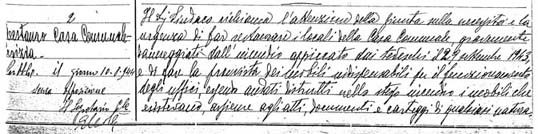 2
Restauro Casa Comunale
il giorno 10-8-944
senza opposizione
Il Segretario
Il Sig. Sindaco richiama l'attenzione della Giunta sulla necessità e la
urgenza di far restaurare i locali della Casa Comunale, gravemente
danneggiati dall'incendio appiccato dai tedeschi il 29 settembre 1943,
e di far la provvista dei mobili indispensabili per il funzionamento
degli uffici, essendo andati distrutti nello stesso incendio i mobili che
esistevano, assieme agli atti, documenti e carteggi di qualsiasi natura.